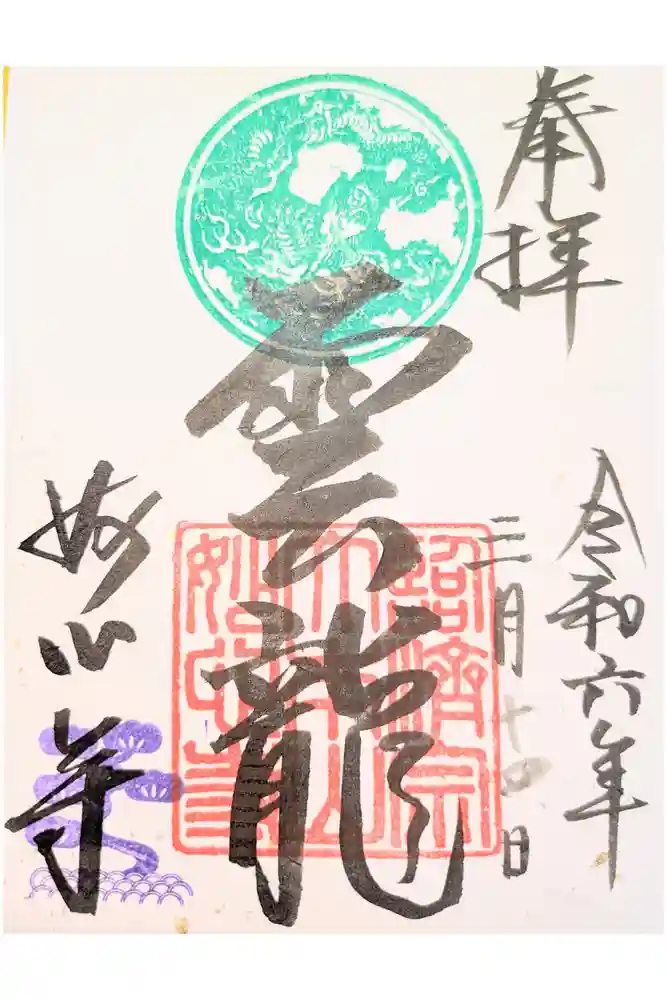 奉拝
令和六年
三月十四日
雲龍
臨濟宗
大本山
妙心寺
妙心寺